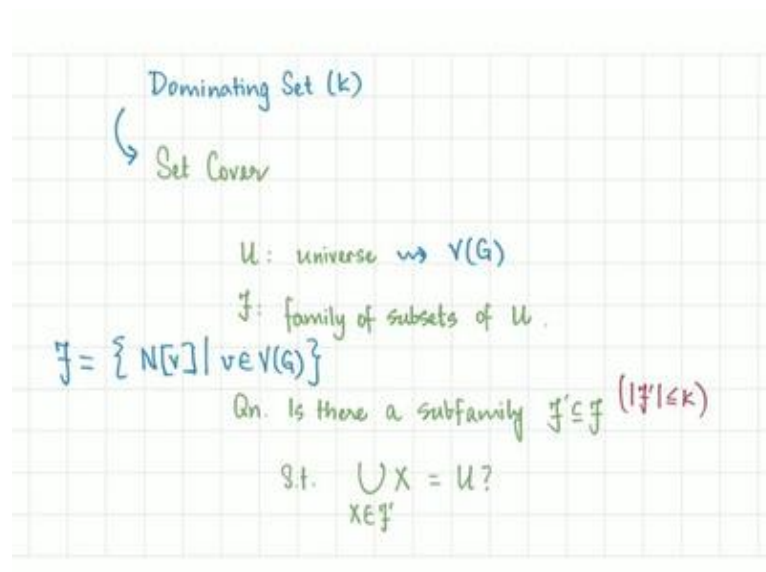 Dominating Set (k)
Set Cover
U: universe ⇝ V(G)
F: family of subsets of U.
F = { N[v] | v ∈ V(G)}
Qn. Is there a subfamily F' ⊆ F (|F'| ≤ k)
s.t. ∪ X = U?
X∈F'